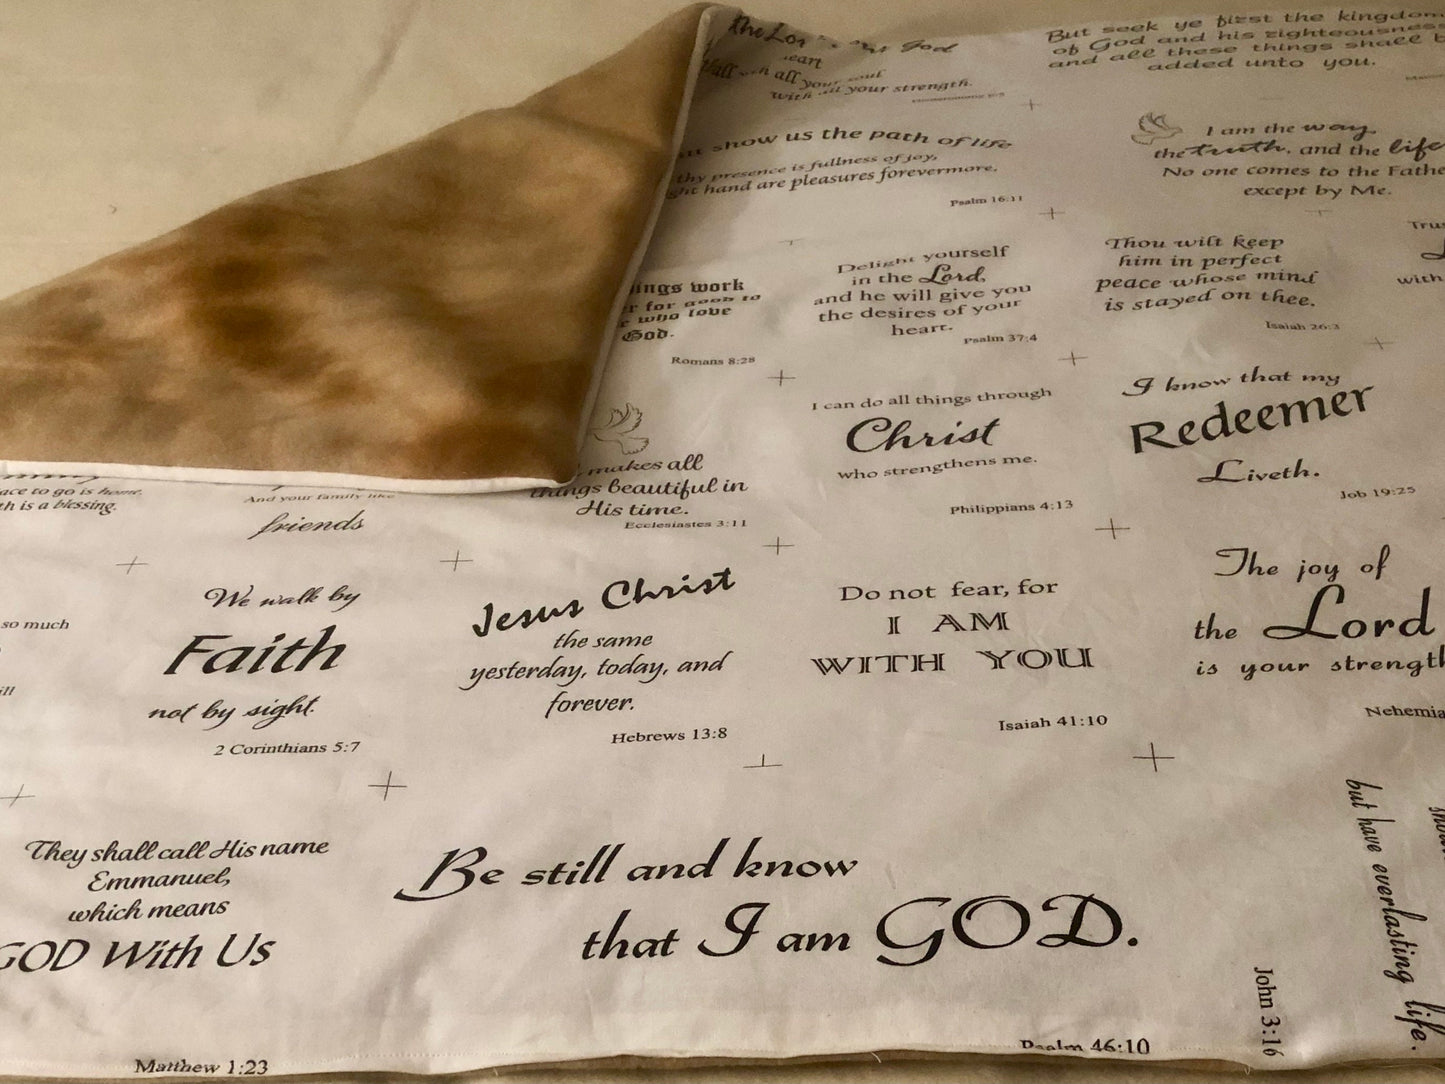 the
God
all your soul
your strength.
show us the path of life
thy presence is fullness of joy,
hand are pleasures forevermore.
Psalm 16:11
But seek ye first the kingdom
of God and his righteousness
and all these things shall
added unto you.
I am the way,
the truth, and the life
No one comes to the
except by Me.
work
for good to
who love
God.
Romans 8:28
Delight yourself
in the Lord,
and he will give you
the desires of your
heart.
Psalm 37:4
Thou wilt keep
him in perfect
peace whose mind
is stayed on thee.
Isaiah 26:3
with
makes all
things beautiful in
His time.
Ecclesiastes 3:11
I can do all things through
Christ
who strengthens me.
Philippians 4:13
I know that my
Redeemer
Liveth.
Job 19:25
to go is home.
is a blessing.
And your family like
friends
so much
We walk by
Faith
not by sight.
2 Corinthians 5:7
Jesus Christ
the same
yesterday, today, and
forever.
Hebrews 13:8
Do not fear, for
I AM
WITH YOU
Isaiah 41:10
The joy of
the Lord
is your strength
They shall call His name
Emmanuel,
which means
GOD With Us
Matthew 1:23
Be still and know
that I am GOD.
Psalm 46:10
but have everlasting life.
John 3:16